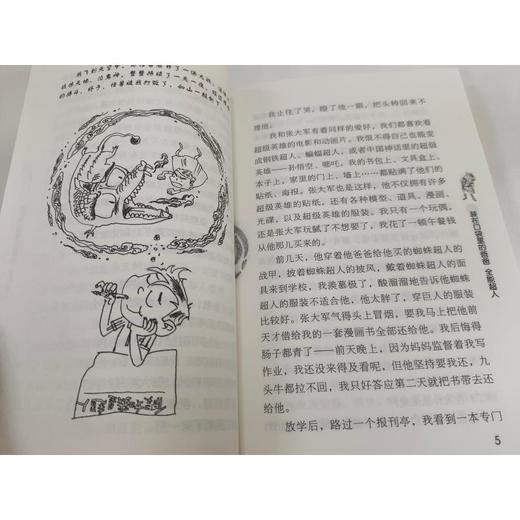 我止住了哭，瞪了他一眼，把头转回来不
理他。
我和张大军有着同样的爱好，我们都喜欢看
超级英雄的电影和动画片，我恨不得自己也能变
成钢铁超人、蝙蝠超人，或者中国神话里的超级
英雄——孙悟空、哪吒。我的书包上、文具盒上、
本子上，家里的门上、墙上……都贴满了他们的
贴纸、海报。张大军也是这样，他不仅拥有许多
超级英雄的贴纸，还有各种模型、道具、漫画、
光碟，以及超级英雄的服装。我只有一个玩偶，
还是张大军玩腻了不想要了，我花了一顿午餐钱
从他那儿买来的。
前几天，他穿着他爸爸给他买的蜘蛛超人的
战甲，披着蜘蛛超人的披风，戴着蜘蛛超人的面
具来到学校，我羡慕极了，酸溜溜地告诉他蜘蛛
超人的服装不适合他，他太胖了，穿巨人的服装
比较好。张大军气得头上冒烟，要我马上把他前
天才借给我的一套漫画书全部还给他。我后悔得
肠子都青了——前天晚上，因为妈妈监督着我写
作业，我还没来得及看呢，但他坚持要我还，九
头牛都拉不回，我只好答应第二天就把书带去还
给他。
放学后，路过一个报刊亭，我看到一本专门
装在口袋里的爸爸 全能超人
5